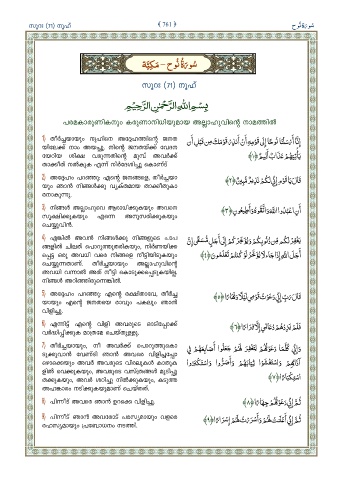 സൂറഃ (71) നൂഹ് ﴾ 761 ﴿ سُورَةُ نُوحٍ
سُورَةُ نُوحٍ - مَكِّيَّة
സൂറഃ (71) നൂഹ്
بِسْمِ اللهِ الرَّحْمَٰنِ الرَّحِيمِ
പരമകാരുണികനും കരുണാനിധിയുമായ അല്ലാഹുവിന്റെ നാമത്തിൽ
1) തീർച്ചയായും നൂഹിനെ അദ്ദേഹത്തിന്റെ ജനത
യിലേക്ക് നാം അയച്ചു, നിന്റെ ജനതയ്ക്ക് വേദന
യേറിയ ശിക്ഷ വരുന്നതിന്റെ മുമ്പ് അവർക്ക്
താക്കീത് നൽകുക എന്ന് നിർദേശിച്ചു കൊണ്ട്
إِنَّا أَرْسَلْنَا نُوحًا إِلَىٰ قَوْمِهِ أَنْ أَنذِرْ قَوْمَكَ مِن قَبْلِ أَن
يَأْتِيَهُمْ عَذَابٌ أَلِيمٌ ﴿١﴾
2) അദ്ദേഹം പറഞ്ഞു എന്റെ ജനങ്ങളെ, തീർച്ചയാ
യും ഞാൻ നിങ്ങൾക്കു വ്യക്തമായ താക്കീതുകാ
രനാകുന്നു.
قَالَ يَا قَوْمِ إِنِّي لَكُمْ نَذِيرٌ مُّبِينٌ ﴿٢﴾
3) നിങ്ങൾ അല്ലാഹുവെ ആരാധിക്കുകയും അവനെ
സൂക്ഷിക്കുകയും എന്നെ അനുസരിക്കുകയും
ചെയ്യുവിൻ.
أَنِ اعْبُدُوا اللَّهَ وَاتَّقُوهُ وَأَطِيعُونِ ﴿٣﴾
4) എങ്കിൽ അവൻ നിങ്ങൾക്കു നിങ്ങളുടെ പാപ
ങ്ങളിൽ ചിലത് പൊറുത്തുതരികയും, നിർണയിക്ക
പ്പെട്ട ഒരു അവധി വരെ നിങ്ങളെ നീട്ടിയിടുകയും
ചെയ്യുന്നതാണ്. തീർച്ചയായും അല്ലാഹുവിന്റെ
അവധി വന്നാൽ അത് നീട്ടി കൊടുക്കപ്പെടുകയില്ല.
നിങ്ങൾ അറിഞ്ഞിരുന്നെങ്കിൽ.
يَغْفِرْ لَكُم مِّن ذُنُوبِكُمْ وَيُؤَخِّرْكُمْ إِلَىٰ أَجَلٍ مُّسَمًّى إِنَّ
أَجَلَ اللَّهِ إِذَا جَاءَ لَا يُؤَخَّرُ لَوْ كُنتُمْ تَعْلَمُونَ ﴿٤﴾
5) അദ്ദേഹം പറഞ്ഞു എന്റെ രക്ഷിതാവേ, തീർച്ച
യായും എന്റെ ജനതയെ രാവും പകലും ഞാൻ
വിളിച്ചു.
قَالَ رَبِّ إِنِّي دَعَوْتُ قَوْمِي لَيْلًا وَنَهَارًا ﴿٥﴾
6) എന്നിട്ട് എന്റെ വിളി അവരുടെ ഓടിപ്പോക്ക്
വർദ്ധിപ്പിക്കുക മാത്രമേ ചെയ്തുള്ളൂ.
فَلَمْ يَزِدْهُمْ دُعَائِي إِلَّا فِرَارًا ﴿٦﴾
7) തീർച്ചയായും, നീ അവർക്ക് പൊറുത്തുകൊ
ടുക്കുവാൻ വേണ്ടി ഞാൻ അവരെ വിളിച്ചപ്പോ
ഴൊക്കെയും അവർ അവരുടെ വിരലുകൾ കാതുക
ളിൽ വെക്കുകയും, അവരുടെ വസ്ത്രങ്ങൾ മൂടിപ്പു
തക്കുകയും, അവർ ശഠിച്ചു നിൽക്കുകയും, കടുത്ത
അഹങ്കാരം നടിക്കുകയുമാണ് ചെയ്തത്.
وَإِنِّي كُلَّمَا دَعَوْتُهُمْ لِتَغْفِرَ لَهُمْ جَعَلُوا أَصَابِعَهُمْ فِي
آذَانِهِمْ وَاسْتَغْشَوْا ثِيَابَهُمْ وَأَصَرُّوا وَاسْتَكْبَرُوا
اسْتِكْبَارًا ﴿٧﴾
8) പിന്നീട് അവരെ ഞാൻ ഉറക്കെ വിളിച്ചു.
ثُمَّ إِنِّي دَعَوْتُهُمْ جِهَارًا ﴿٨﴾
9) പിന്നീട് ഞാൻ അവരോട് പരസ്യമായും വളരെ
രഹസ്യമായും പ്രബോധനം നടത്തി.
ثُمَّ إِنِّي أَعْلَنتُ لَهُمْ وَأَسْرَرْتُ لَهُمْ إِسْرَارًا ﴿٩﴾